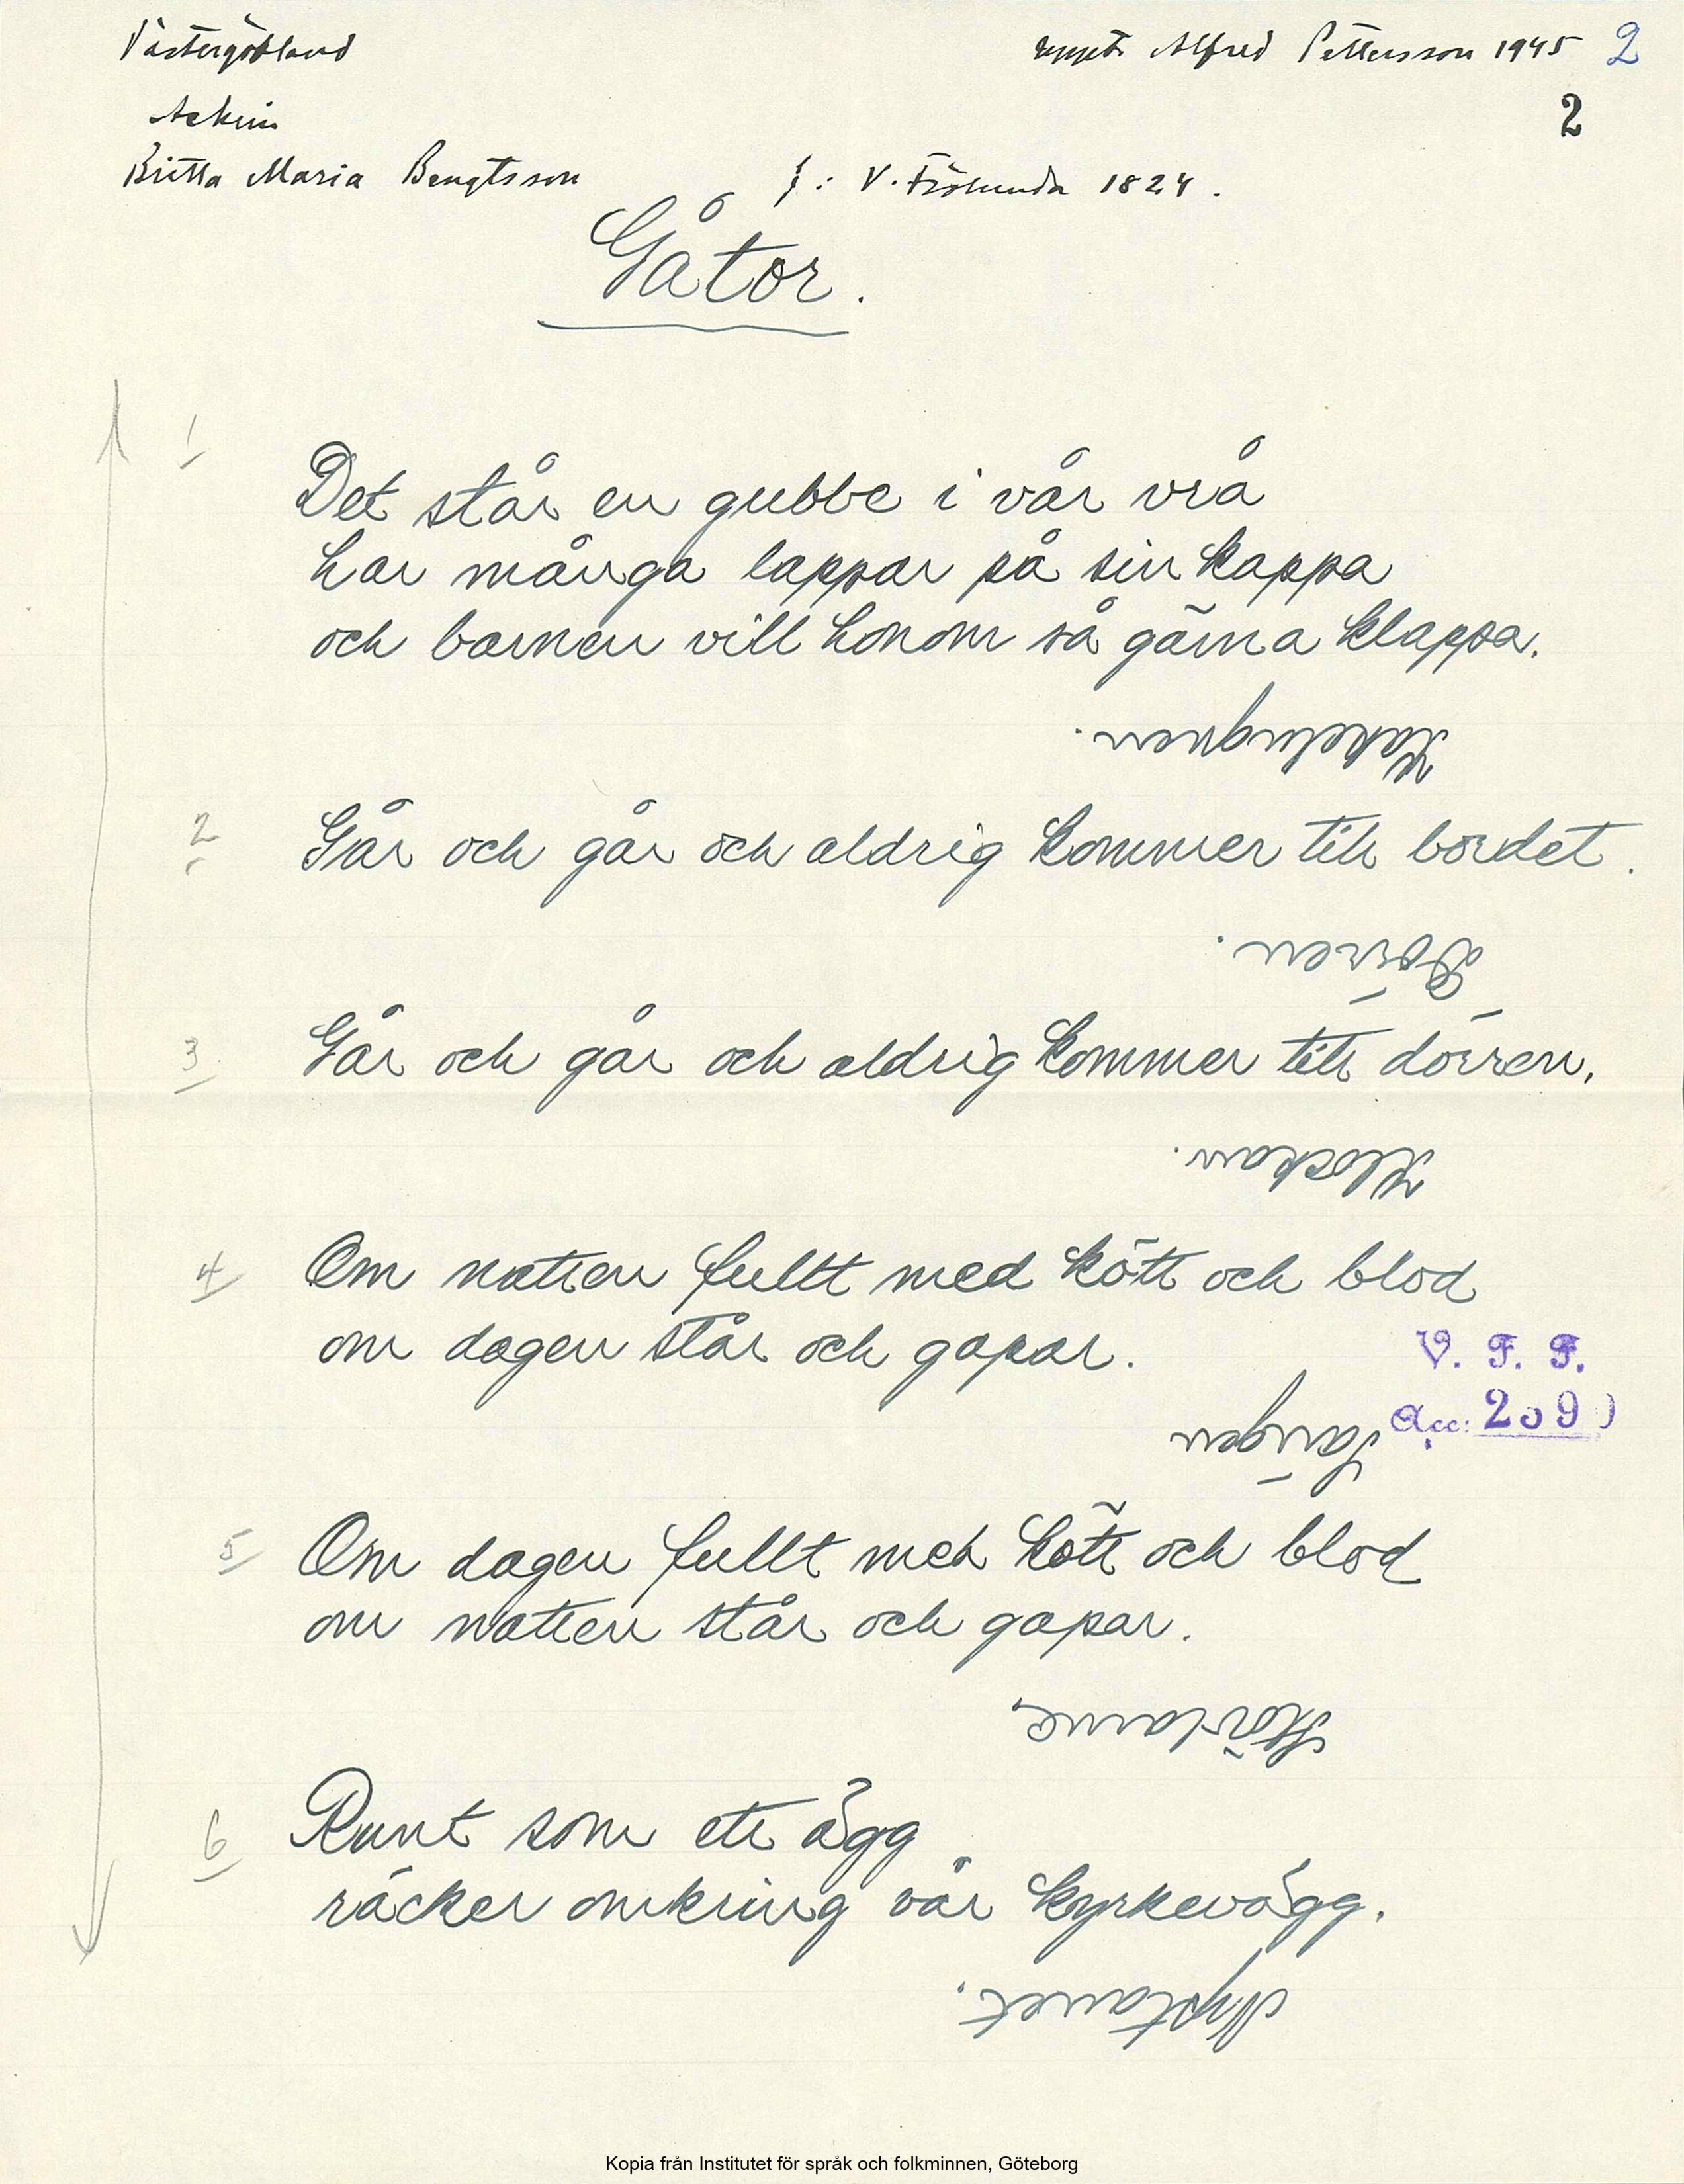 Västergötland
uppt. Alfred Pettersson 1945 2
2
Askim
Britta Maria Bengtsson f: V. Frölunda 1824.
Gåtor.
1
Det står en gubbe i vår vrå
har många lappar på sin kappa
och barnen vill honom så gärna klappa.
Kakelugnen.
2 Går och går och aldrig kommer till bordet.
Dörren.
3 Går och går och aldrig kommer till dörren.
Klockan.
4 Om natten fullt med kött och blod
om dagen står och gapar.
V. F. F.
Acc: 209
Sängen
5 Om dagen fullt med kött och blod
om natten står och gapar.
Skorna.
6 Runt som ett ägg
räcker omkring vår kyrkevägg.
Nystanet.
Kopia från Institutet för språk och folkminnen, Göteborg